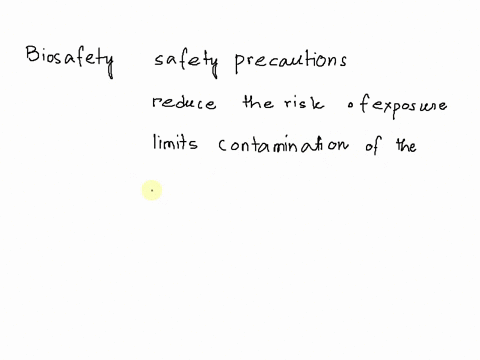 Biosafety safety precautions
reduce the risk of exposure
limits contamination of the